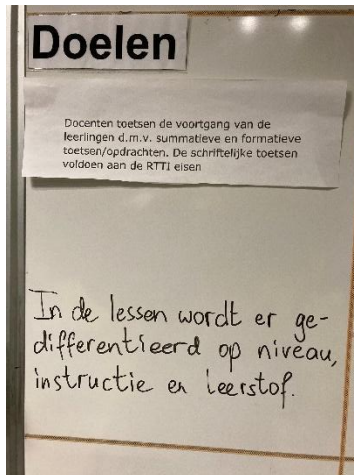 Doelen
Docenten toetsen de voortgang van de
leerlingen d.m.v. summatieve en formatieve
toetsen/opdrachten. De schriftelijke toetsen
voldoen aan de RTTI eisen
In de lessen wordt er ge-
differentieerd op niveau,
instructie en leerstof.